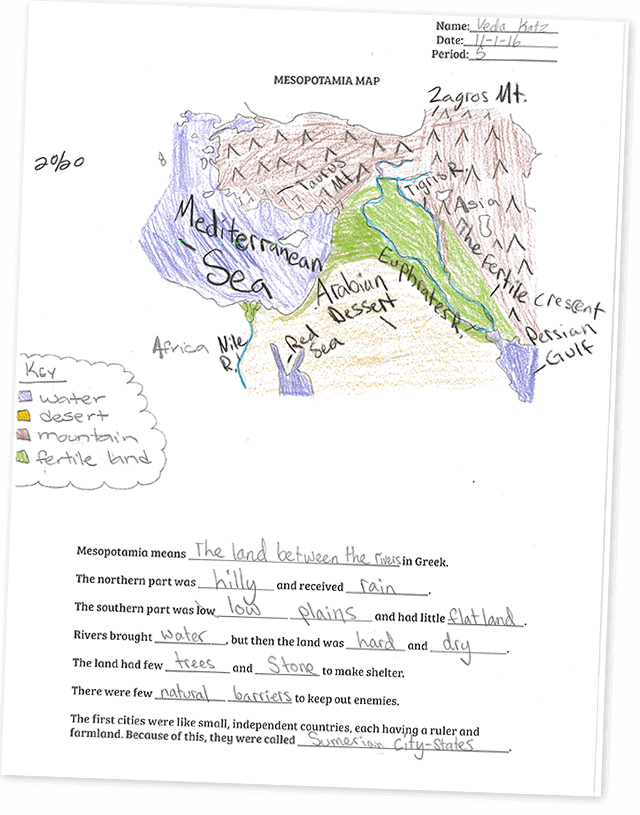 Name: Veda Katz
Date: 11-1-16
Period: 5
MESOPOTAMIA MAP
Zagros Mt.
20/20
Taurus Mt.
Tigris R.
Asia
Mediterranean Sea
The Fertile Crescent
Euphrates R.
Arabian Dessert
Persian Gulf
Africa
Nile R.
Red Sea
KEY
water
desert
mountain
fertile land
Mesopotamia means The land between the rivers in Greek.
The northern part was hilly and received rain.
The southern part was low low plains and had little flatland.
Rivers brought water, but then the land was hard and dry.
The land had few trees and Stone to make shelter.
There were few natural barriers to keep out enemies.
The first cities were like small, independent countries, each having a ruler and
farmland. Because of this, they were called Sumerian City-States.